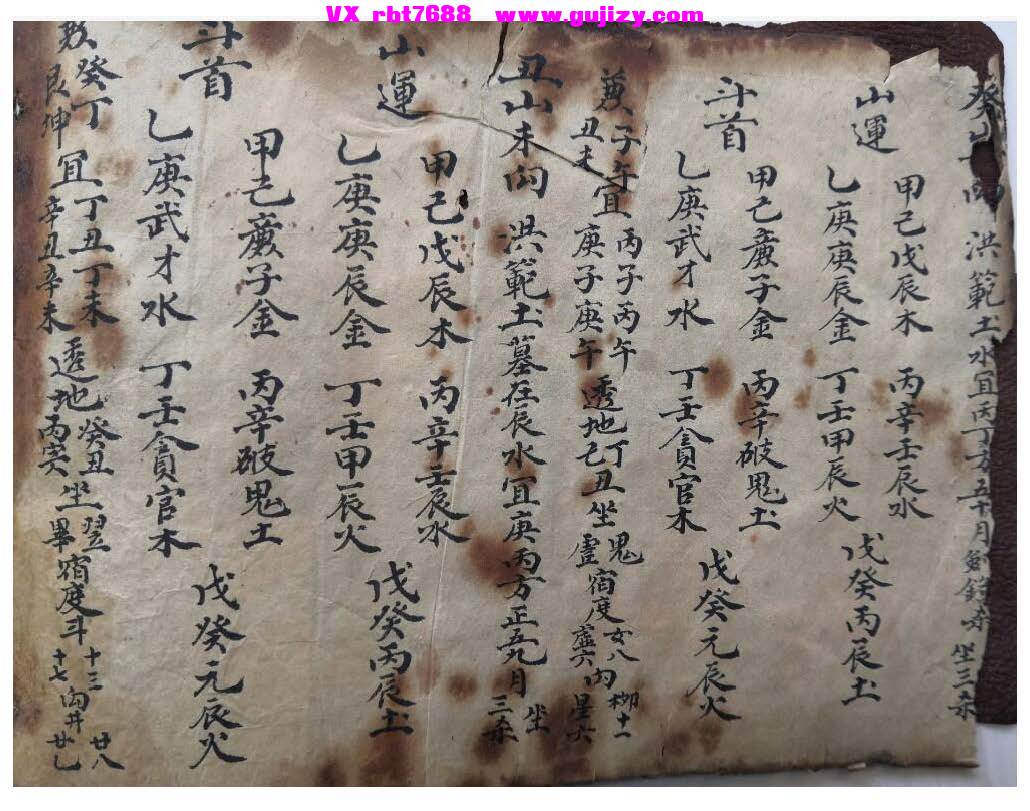 VX rbt7688 www.gujizy.com
洪範土水宜丙丁方五十月 坐三杀
山運
甲己戊辰木 丙辛壬辰水
乙庚庚辰金 丁壬甲辰火
戊癸丙辰土
斗首
甲己廉子金 丙辛破鬼土
乙庚武才水 丁壬貪官木
戊癸元辰火
兼子午宜丙子丙午透地丁丑坐鬼宿度女八向柳十一
丑未 庚子庚午 己 虚 虛六 星六
丑山未向 洪範土墓在辰水宜庚丙方正五九月坐三杀
山運
甲己戊辰木 丙辛壬辰水
乙庚庚辰金 丁壬甲辰火
戊癸丙辰土
斗首
甲己廉子金 丙辛破鬼土
乙庚武才水 丁壬貪官木
戊癸元辰火
癸丁宜丁丑丁未透地癸丑坐翌宿度斗十三向井廿八
艮坤 辛丑辛未 丙寅 畢 十七 廿七